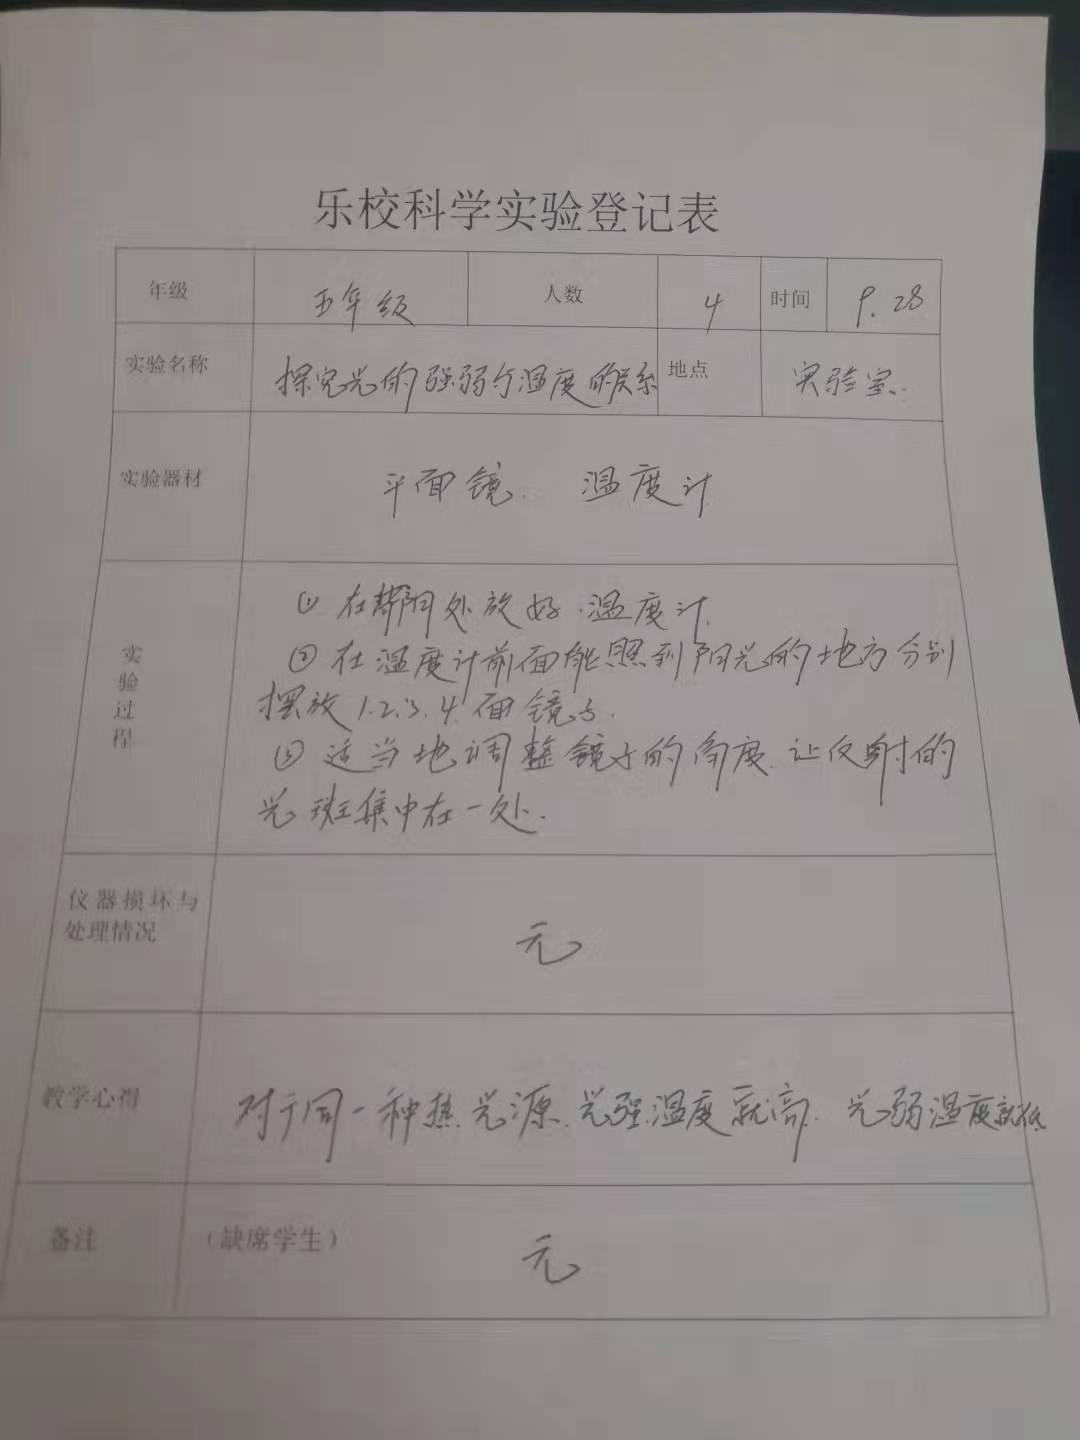 乐校科学实验登记表
年级 五年级 人数 4 时间 9.28
实验名称 探究光的强弱与温度的关系 地点 实验室.
实验器材 平面镜. 温度计
实验过程
① 在背阴处放好.温度计.
② 在温度计前面能照到阳光的地方分别
摆放1.2.3.4.面镜子.
③ 适当地调整镜子的角度.让反射的
光斑集中在一处.
仪器损坏与
处理情况
无
教学心得 对于同一种热光源.光强.温度就高. 光弱温度就低
备注 (缺席学生) 无